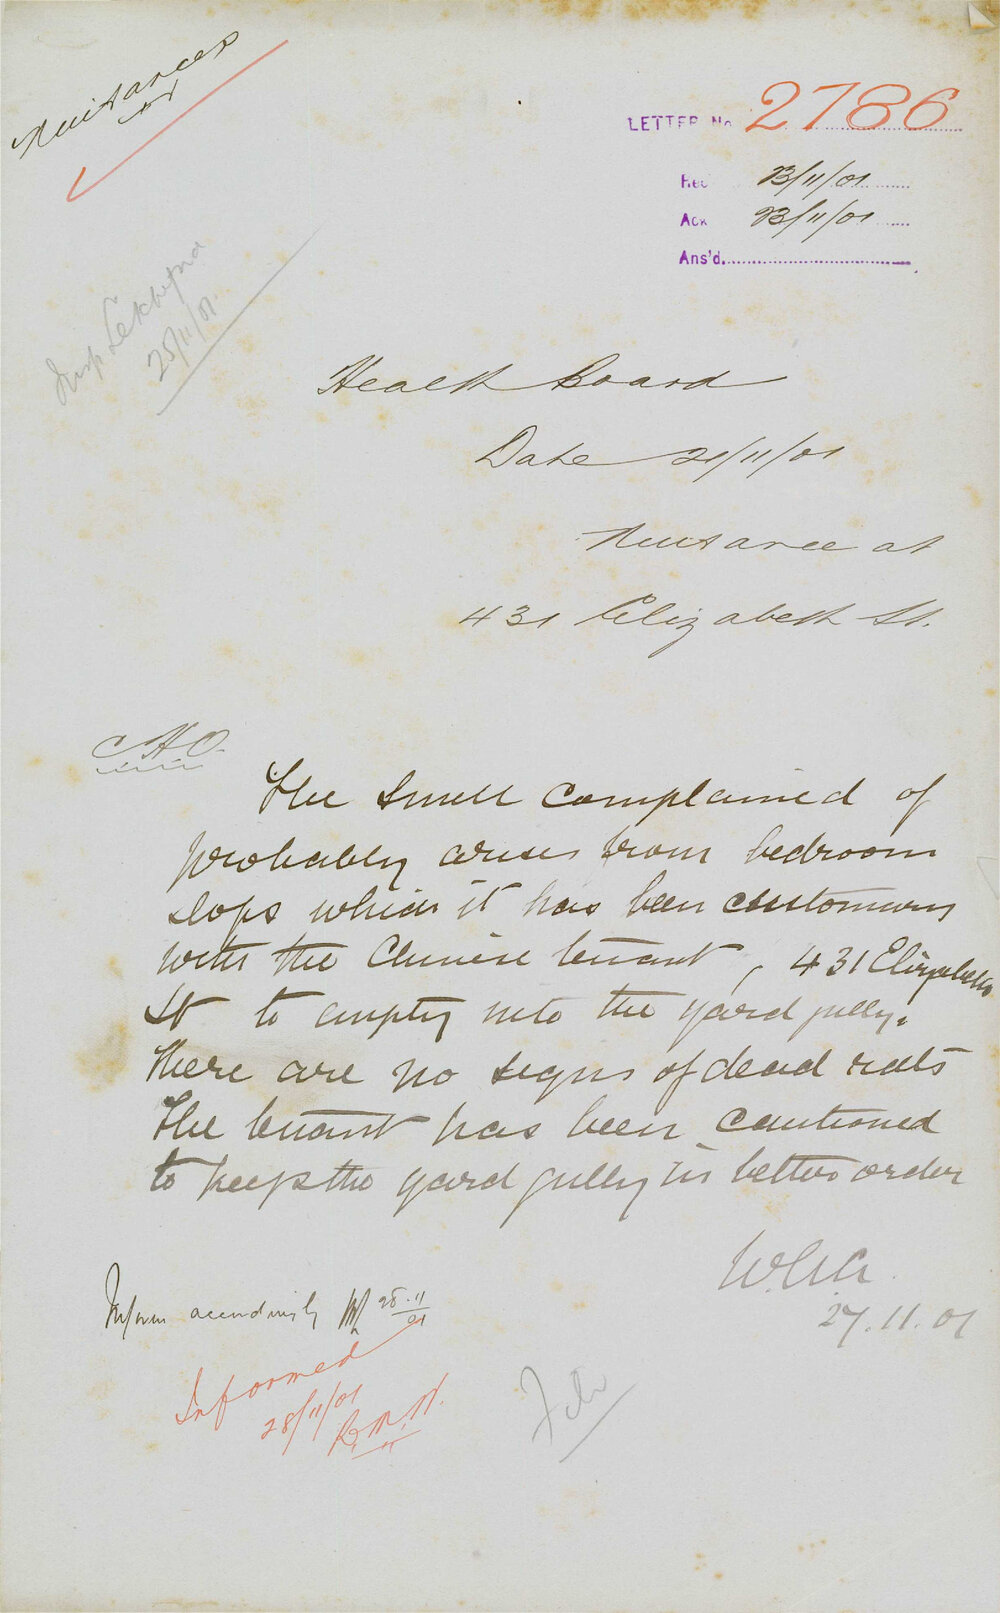 Nuisances
LETTER No. 2786
Rec 23/11/01
Ack 23/11/01
Ans'd.
Insp
25/11/01
Health Board
Date 21/11/01
Nuisance at
431 Elizabeth St.
CHO
The smell complained of
probably arises from bedroom
slops which it has been customary
with the Chinese tenant, 431 Elizabeth
St to empty into the yard gully.
There are no signs of dead rats
The tenant has been cautioned
to keep the yard gully in better order
27.11.01
Inform accordingly 28.11
01
Informed
28/11/01